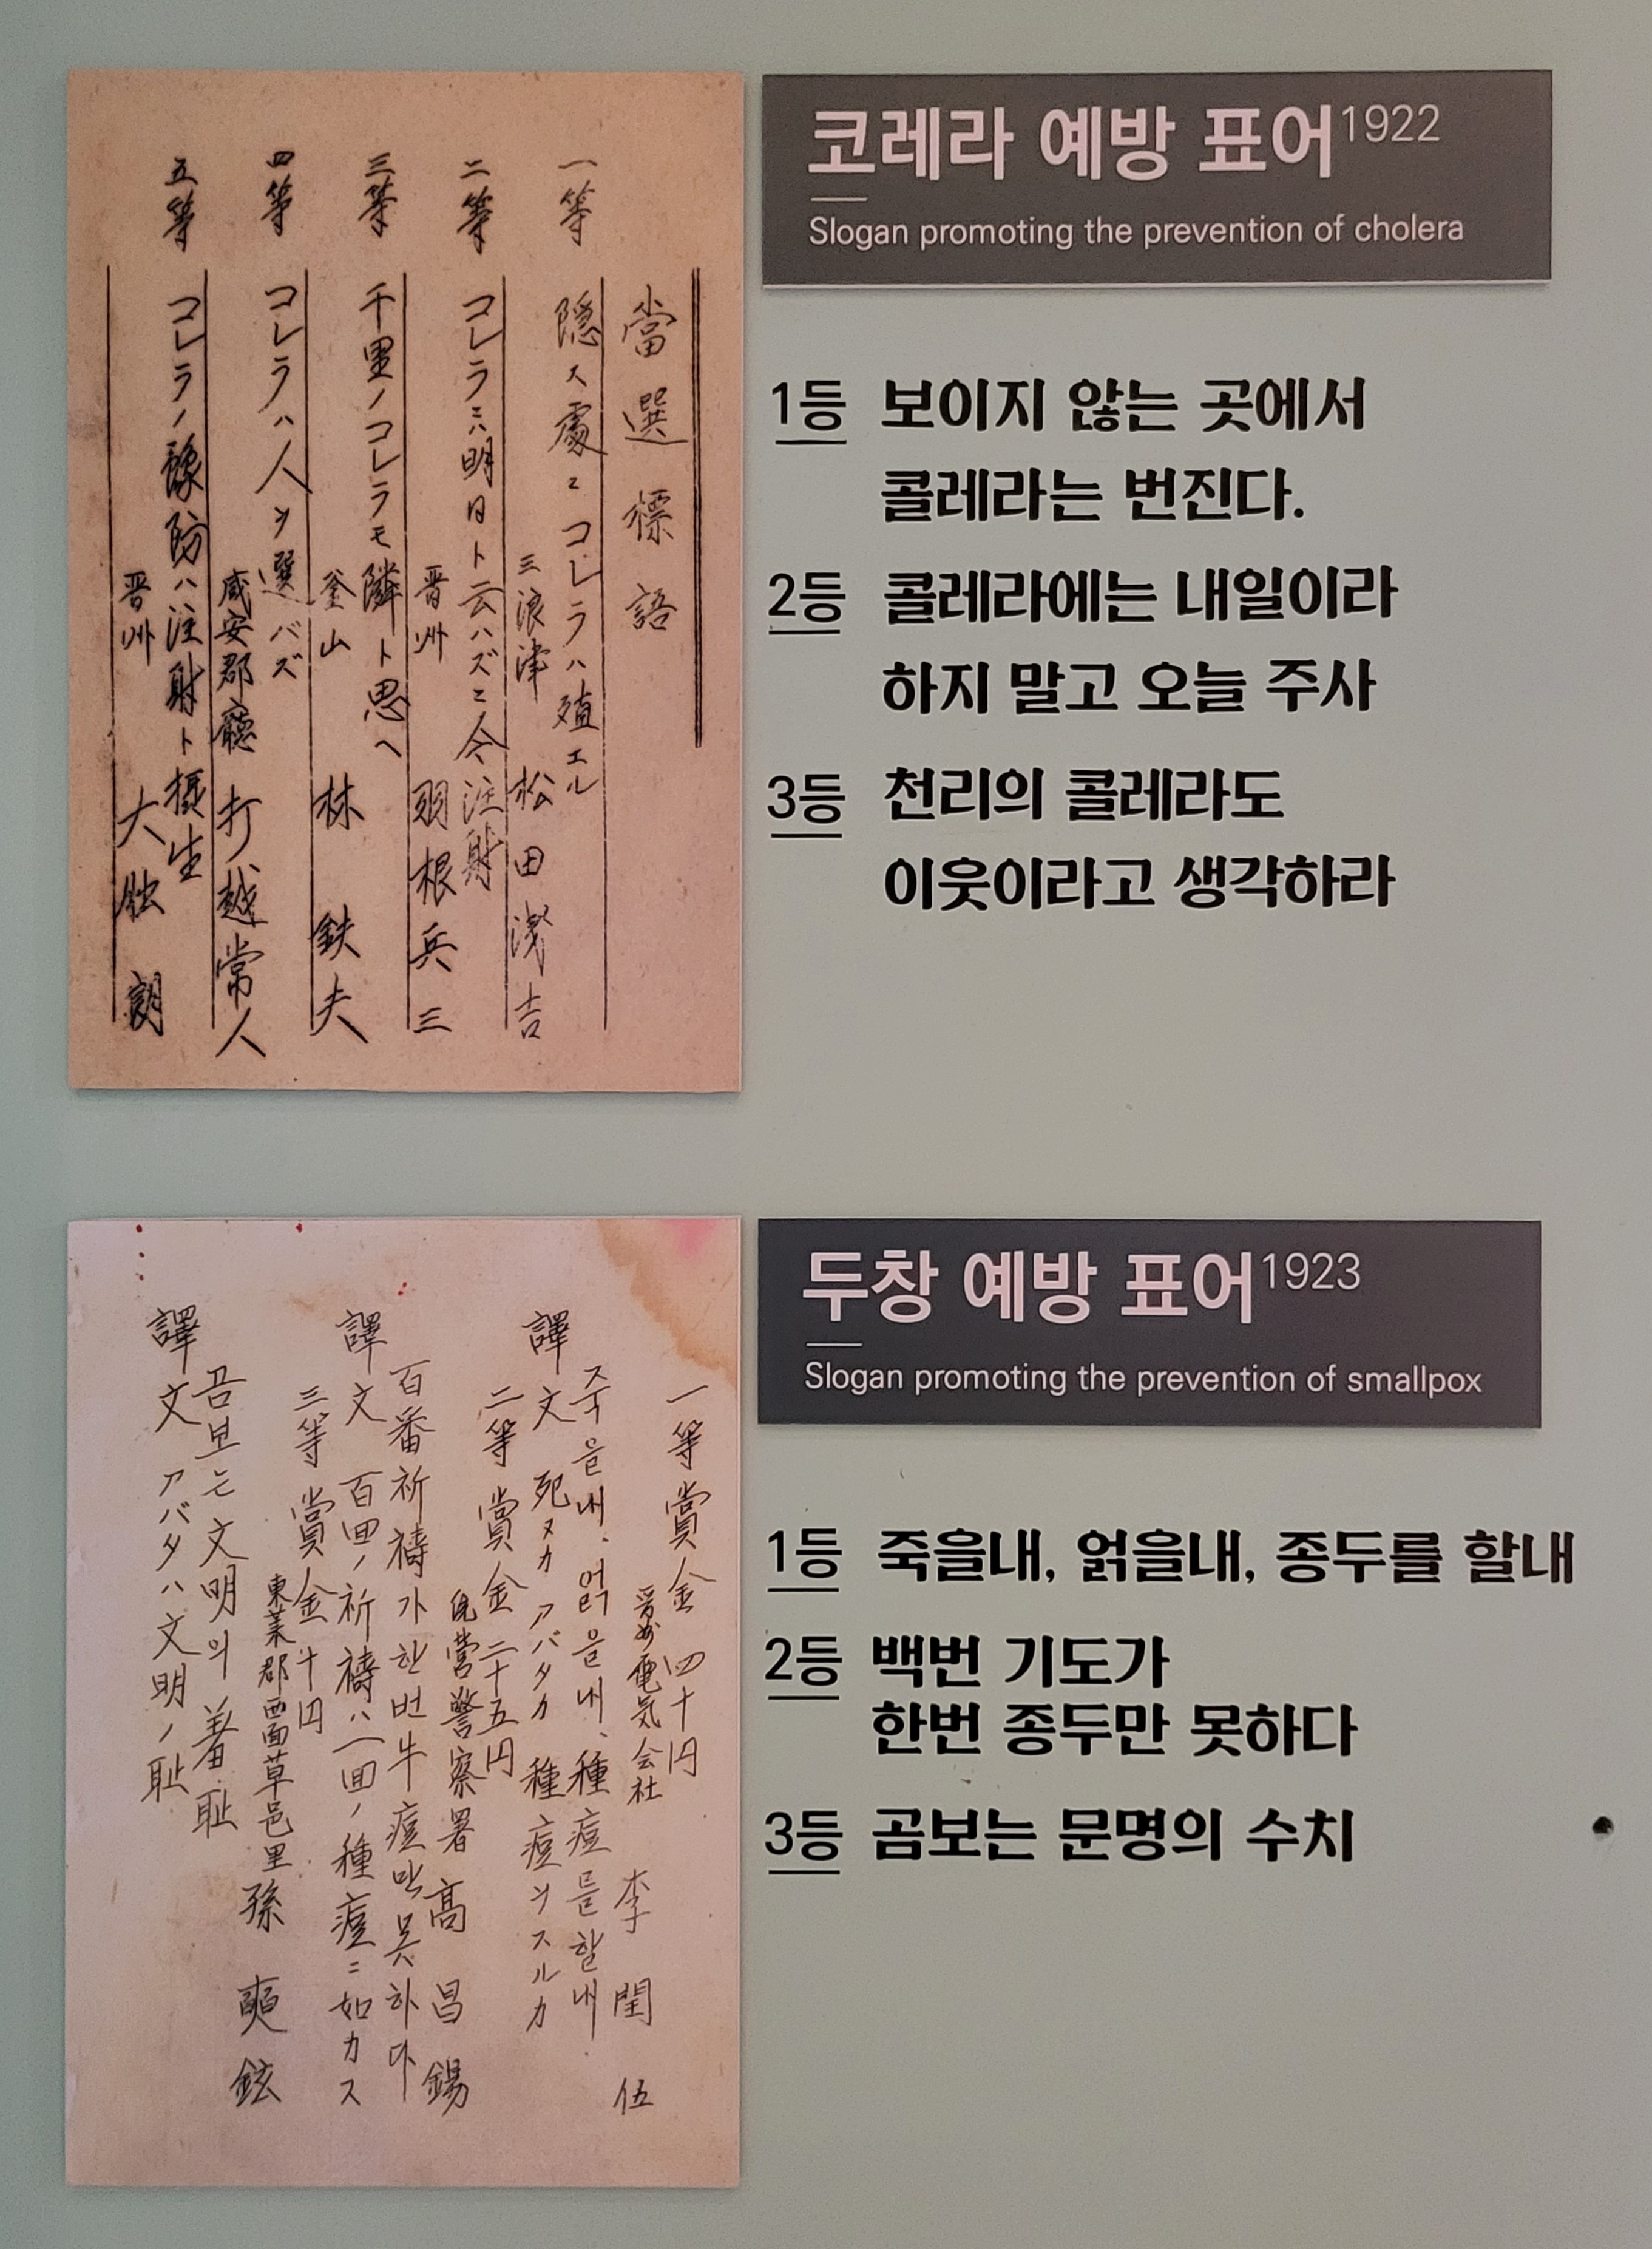 當選標語
一等 隠ス處ニコレラハ殖エル
三浪津 松田浅吉
二等 コレラニハ明日ト云ハズニ今注射
晋州 羽根兵三
三等 千里ノコレラモ隣ト思ヘ
釜山 林鉄夫
四等 コレラハ人ヲ選バズ
咸安郡廳 打越常人
五等 コレラノ豫防ハ注射ト摂生
晋州 大 朗
코레라 예방 표어1922
Slogan promoting the prevention of cholera
1등 보이지 않는 곳에서
콜레라는 번진다.
2등 콜레라에는 내일이라
하지 말고 오늘 주사
3등 천리의 콜레라도
이웃이라고 생각하라
一等賞金四十円
晋州電気会社 李閏伍
죽을내、얽을내、種痘를할내
譯文 死ヌカアバタカ種痘ヲスルカ
二等賞金二十五円
統營警察署 高昌錫
百番祈禱가한번牛痘만못하다
譯文 百回ノ祈禱ハ一回ノ種痘ニ如カス
三等賞金十円
東萊郡西面草邑里 孫奭鉉
곰보는文明의羞恥
譯文 アバタハ文明ノ恥
두창 예방 표어1923
Slogan promoting the prevention of smallpox
1등 죽을내, 얽을내, 종두를 할내
2등 백번 기도가
한번 종두만 못하다
3등 곰보는 문명의 수치